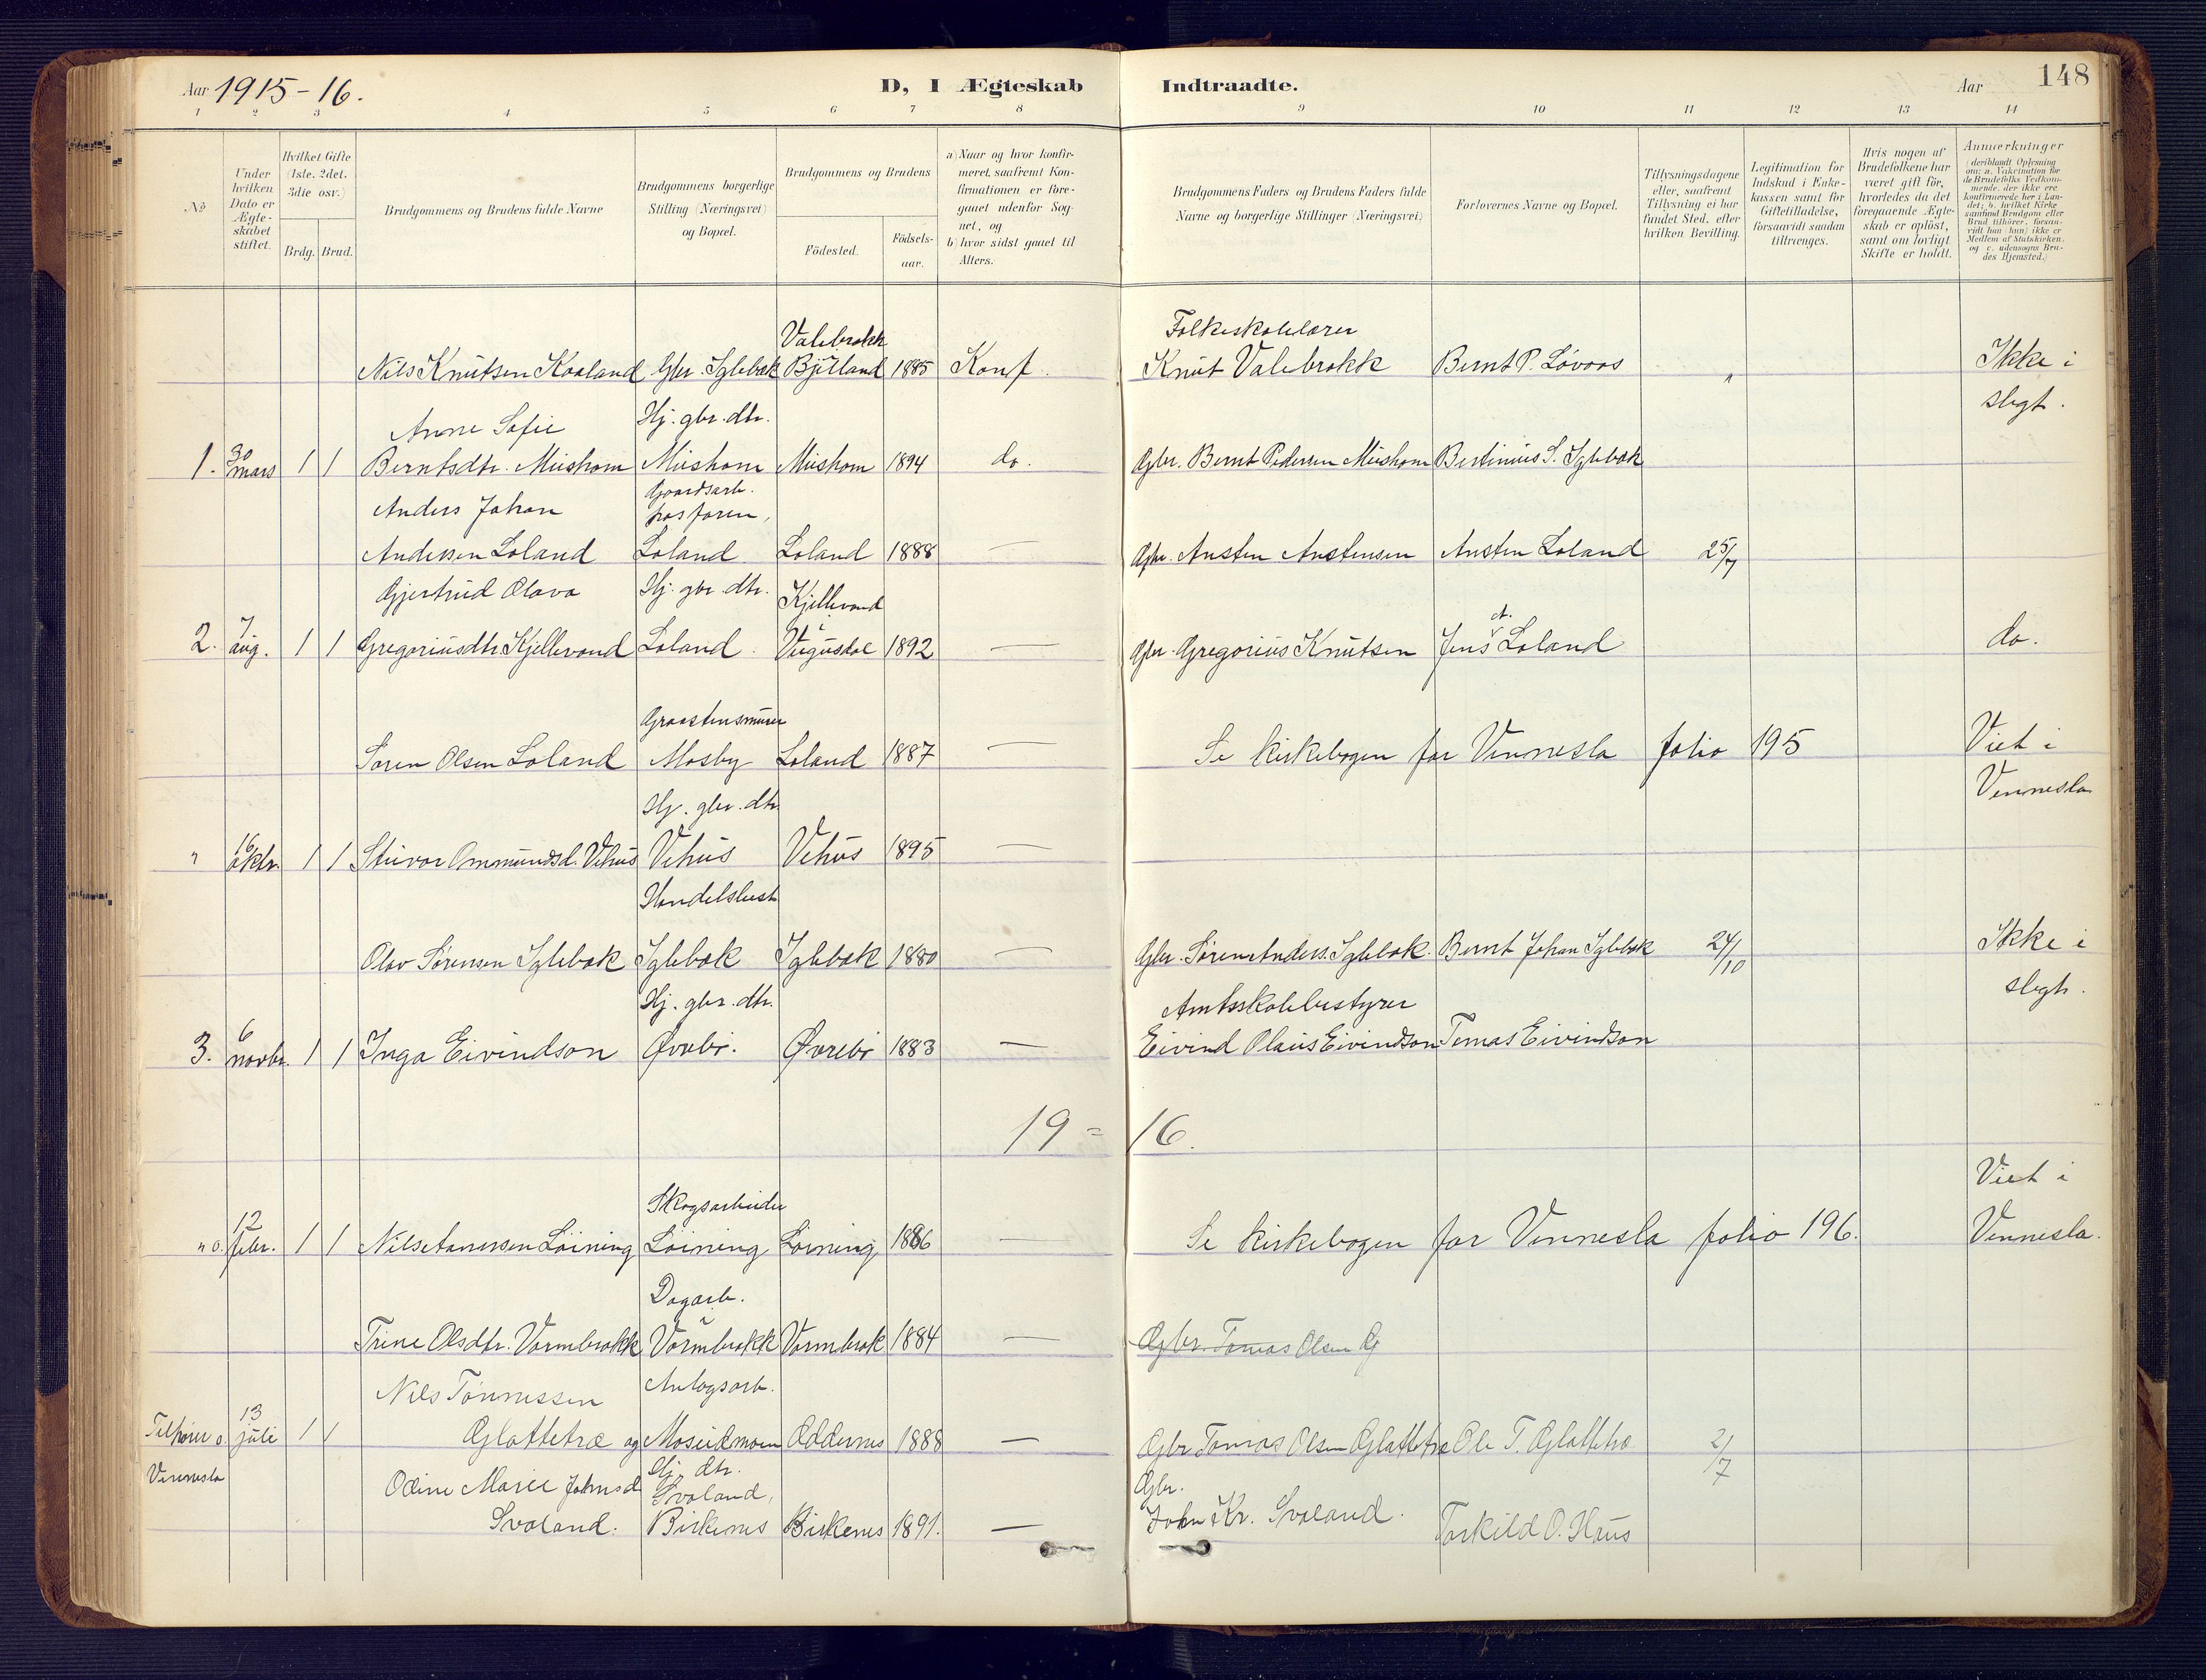 Aar 1915-16.
D, I Ægteskab Indtraadte.
Aar 148
1 2 3 4 5 6 7 8 9 10 11 12 13 14
No
Under hvilken Dato er Ægteskabet stiftet.
Hvilket Gifte (1ste, 2det, 3die osv.)
Brdg. Brud.
Brudgommens og Brudens fulde Navne
Brudgommens borgerlige Stilling (Næringsvei) og Bopæl.
Brudgommens og Brudens
Fødested.
Fødselsaar.
a) Naar og hvor konfirmeret, saafremt Konfirmationen er foregaaet udenfor Sognet, og
b) hvor sidst gaaet til Alters.
Brudgommens Faders og Brudens Faders fulde Navne og borgerlige Stillinger (Næringsvei)
Forlovernes Navne og Bopæl.
Tillysningsdagene eller, saafremt Tillysning ei har fundet Sted, efter hvilken Bevilling.
Legitimation for Indskud i Enkekassen samt for Giftetilladelse, forsaavidt saadan tiltrænges.
Hvis nogen af Brudefolkene har været gift før, hvorledes da det foregaaende Ægteskab er opløst, samt om lovligt Skifte er holdt.
Anmærkninger (deriblandt Oplysning om: a. Vakcination for de Brudefolks Vedkommende, der ikke ere konfirmerede her i Landet; b. hvilket Kirkesamfund Brudgom eller Brud tilhører, forsaavidt han (hun) ikke er Medlem af Statskirken, og c. udensogns Brudes Hjemsted.)
Valebrokk Folkeskolelærer
Nils Knutsen Kaaland Gbr. Iglebæk Bjelland 1885 Konf. Knut Valebrokk Bernt P. Løvaas " Ikke i
Anne Sofie Hj. gbr. dtr. slegt.
1. 30 mars 1 1 Berntsdtr. Mushom Mushom Mushom 1894 do. Gbr. Bernt Pedersen Mushom Bertinius S. Iglebæk
Anders Johan Gaardsarb. hos faren,
Anderssen Loland Loland Loland 1888 — Gbr. Austen Austensen Austen Loland 25/7
Gjertrud Olava Hj. gbr. dtr. Kjellevand i
2. 7 aug. 1 1 Gregoriusdtr Kjellevand Loland Vegusdal 1892 — Gbr. Gregorius Knutsen Jens A. Loland do.
Graastensmurer
Søren Olsen Loland Mosby Loland 1887 — Se kirkebogen for Vennesla folio 195 Viet i
Hj. gbr. dtr. Vennesla
" 16 oktr. 1 1 Ommundsd. Vehus Vehus Vehus 1895 —
Handelsbest
Olav Sørensen Iglebæk Iglebæk Iglebæk 1880 — Gbr. Søren Anders. Iglebæk. Bernt Johan Iglebæk 24/10 Ikke i
Hj. gbr. dtr. Amtsskolebestyrer slegt.
3. 6 novbr. 1 1 Inga Eivindson Øvrebø. Øvrebø 1883 — Eivind Olaus Eivindson Tomas Eivindson
19 = 16.
Skogsarbeider Viet i
" o. 12 febr. 1 1 Nils Løining Løining Løining 1886 — Se kirkebogen for Vennesla folio 196. Vennesla.
Dagarb.
Trine Olsdtr. Vormbrokk Vormbrokk Vormbrok 1884 — Gbr. Tomas Olsen Gj
Nils Tønnessen Anlegsarb.
Tilhører o. 13 juli 1 1 Glattetræ og Moseidmoen Oddernes 1888 — Gbr Tomas Olsen Glattetræ Ole T. Glattetræ 2/7
Vennesla Odine Marie Johnsd Hj. dtr. Svaland, Gbr.
Svaland. Birkenes Birkenes 1891. — John Kr. Svaland. Torkild O. Haus